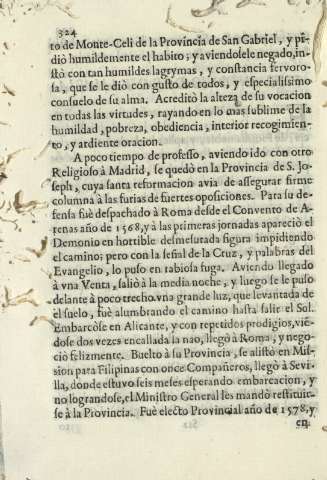 324
to de Monte-Celi de la Provincia de San Gabriel, y pi-
diò humildemente el habito; y aviendosele negado, in-
stò con tan humildes lagrymas, y constancia fervoro-
sa, que se le diò con gusto de todos, y especialissimo
consuelo de su alma. Acreditò la alteza de su vocacion
en todas las virtudes, rayando en lo mas sublime de la
humildad, pobreza, obediencia, interior recogimien-
to, y ardiente oracion.
A poco tiempo de professo, aviendo ido con otro
Religioso à Madrid, se quedò en la Provincia de S. Jo-
seph, cuya santa reformacion avia de assegurar firme
columna à las furias de fuertes oposiciones. Para su de-
fensa fuè despachado à Roma desde el Convento de A-
renas año de 1568, y à las primeras jornadas apareciò el
Demonio en horrible desmesurada figura impidiendo
el camino; pero con la señal de la Cruz, y palabras del
Evangelio, lo puso en rabiosa fuga. Aviendo llegado
à vna Venta, saliò à la media noche, y luego se le puso
delante à poco trecho vna grande luz, que levantada de
el suelo, fuè alumbrando el camino hasta salir el Sol.
Embarcòse en Alicante, y con repetidos prodigios, vié-
dose dos vezes encallada la nao, llegò à Roma, y nego-
ciò felizmente. Buelto à su Provincia, se alistò en Mis-
sion para Filipinas con once Compañeros, llegò à Sevi-
lla, donde estuvo seis meses esperando embarcacion, y
no lograndose, el Ministro General les mandò restituir-
se à la Provincia. Fuè electo Provincial año de 1578, y
en